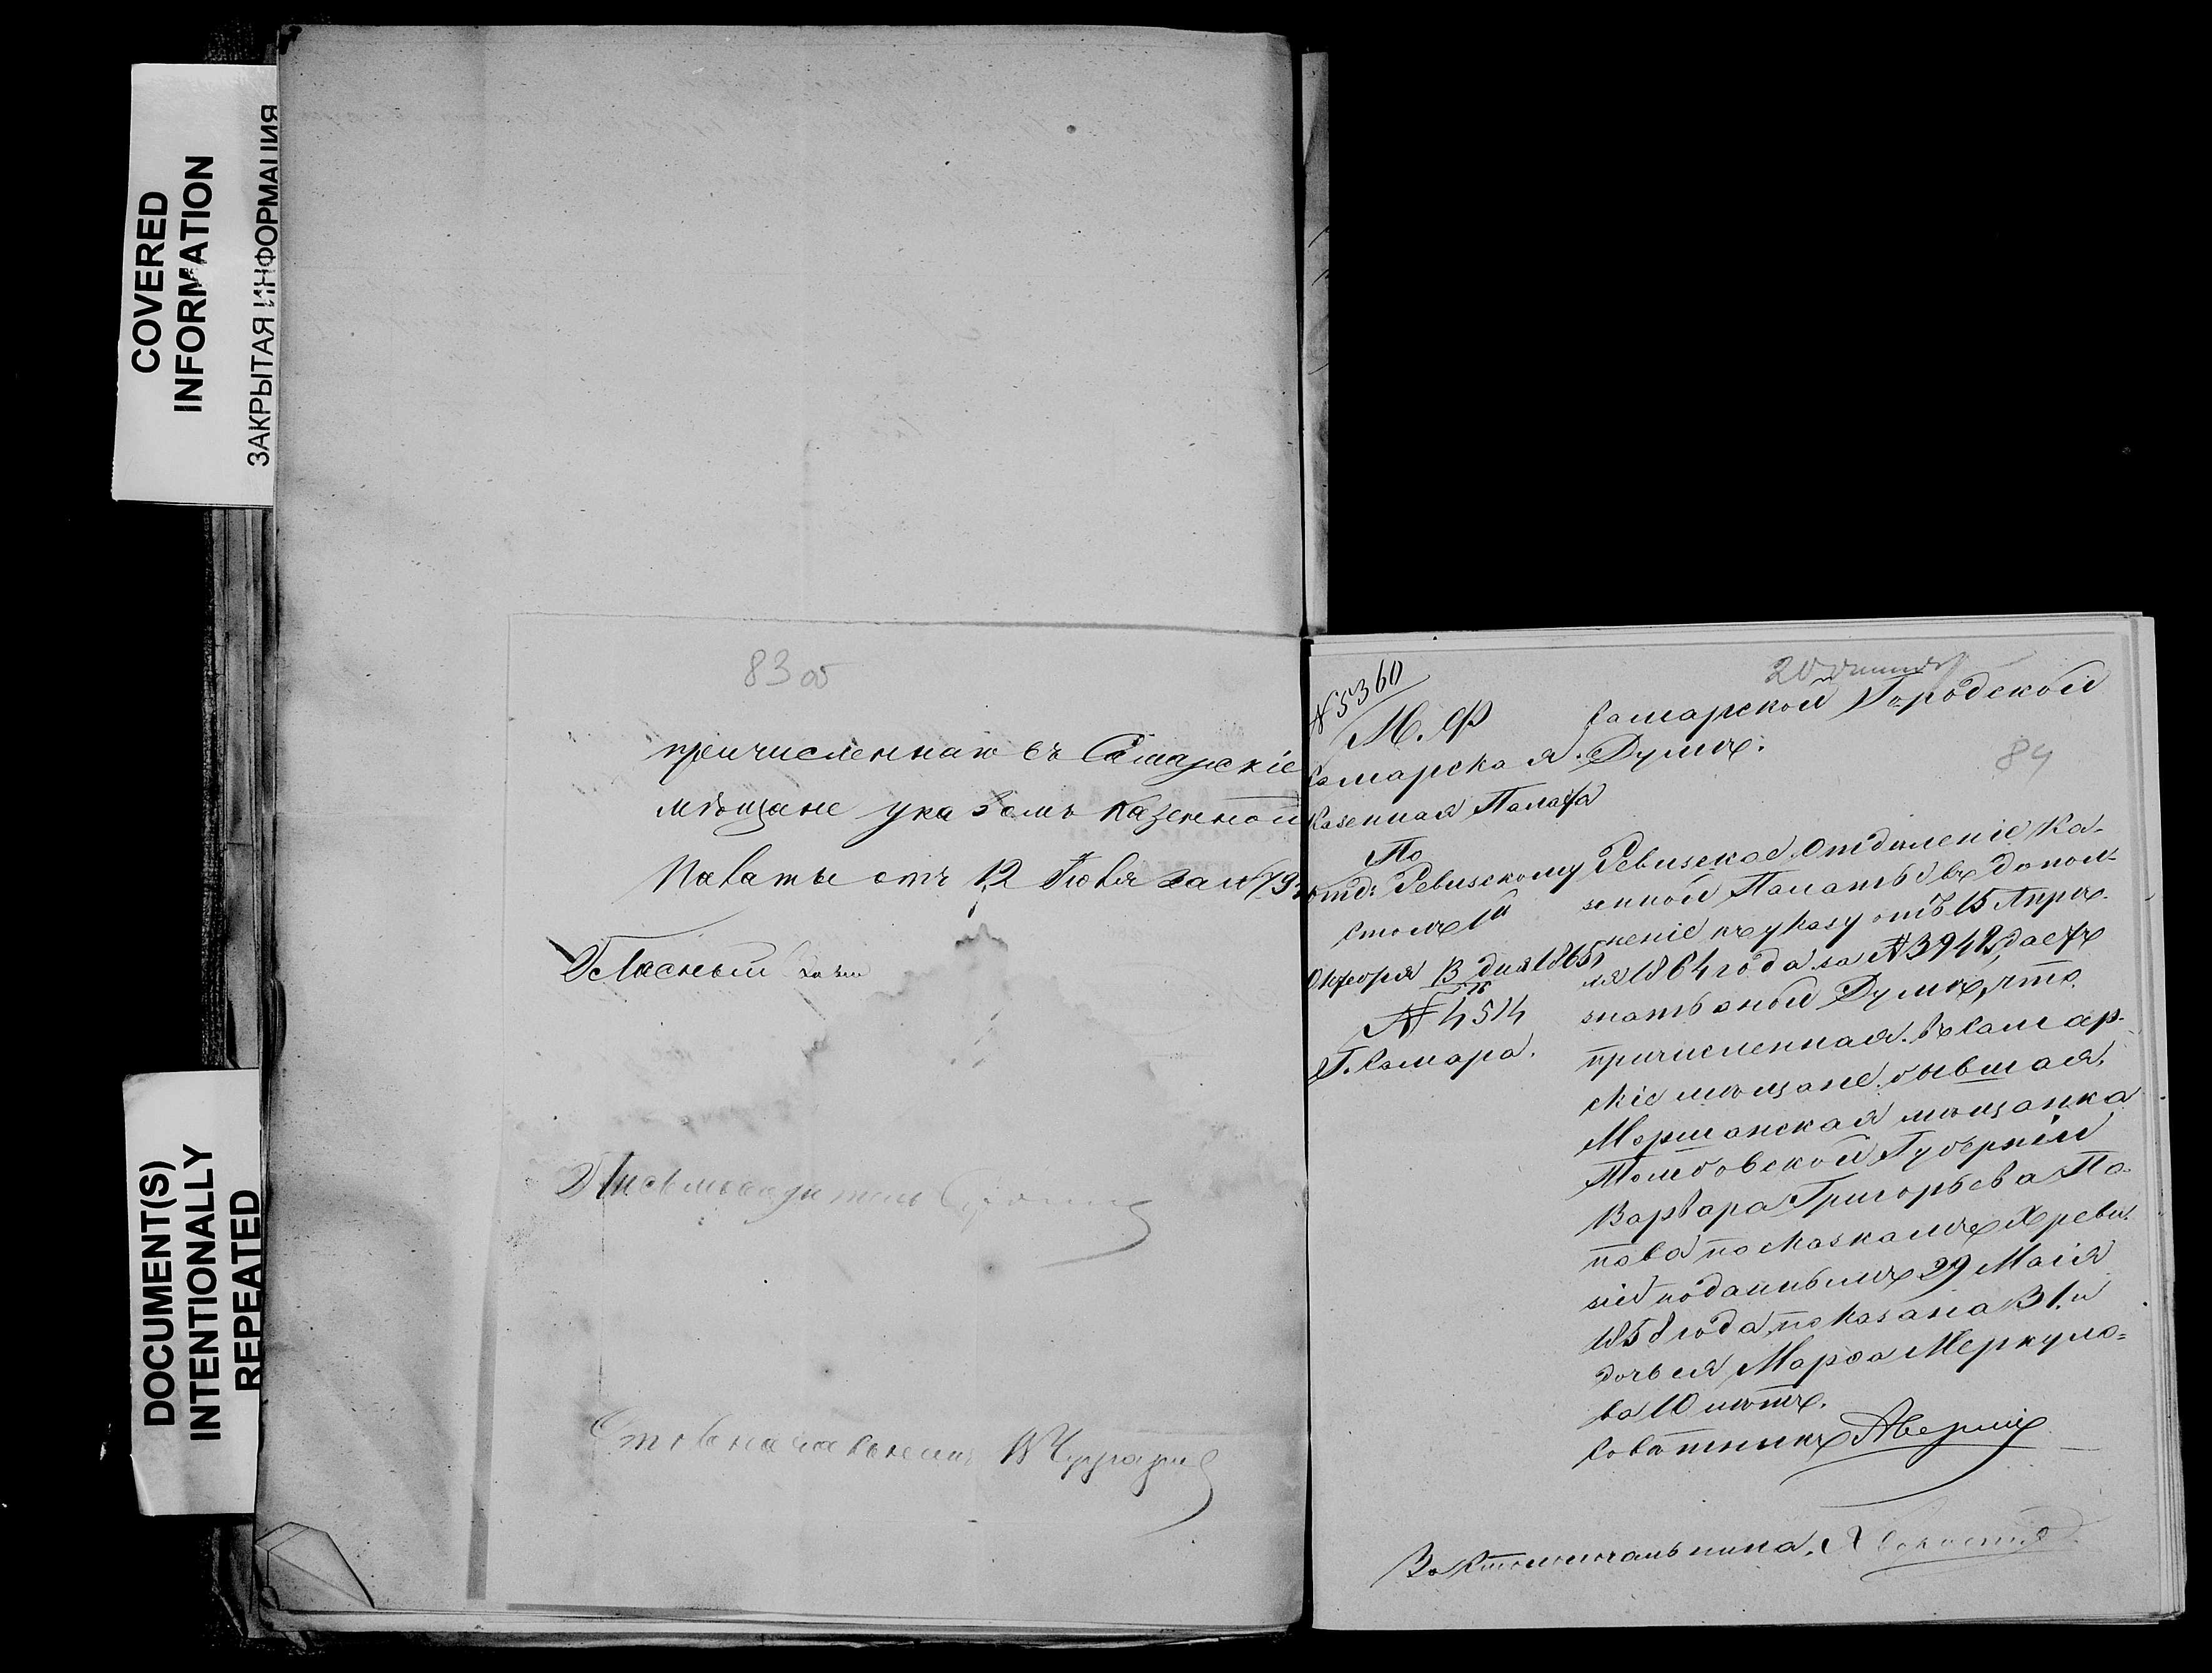 COVERED
INFORMATION
ЗАКРЫТАЯ ИНФОРМАЦИЯ
DOCUMENT(S)
INTENTIONALLY
REPEATED
83 об
причисленнаю въ Самарскіе
мѣщане указомъ Казенной
Палаты отъ 12 Іюля за № 79
Гласный
Письмоводитель
Столоначальникъ
№ 5360
М. Ф.
Самарская
Казенная Палата
По
отд: Ревизскому
столъ 1й
Октября 13 дня 1865 г.
№ 4514
Г. Самара.
20 октября
Самарской Городской
Думѣ.
84
Ревизское Отдѣленіе Ка-
зенной Палаты въ допол-
неніе къ указу отъ 15 Апрѣ-
ля 1864 года за № 3942, даетъ
знать оной Думѣ, что
причисленная въ Самар-
скіе мѣщане бывшая
Моршанская мѣщанка
Тамбовской Губерніи
Варвара Григорьева По-
пова по сказкамъ X реви-
зіи поданнымъ 29 Маія
1858 года, показана 31. и
дочь ея Марѳа Меркуло-
ва 10 лѣтъ.
Совѣтникъ
За Столоначальника,